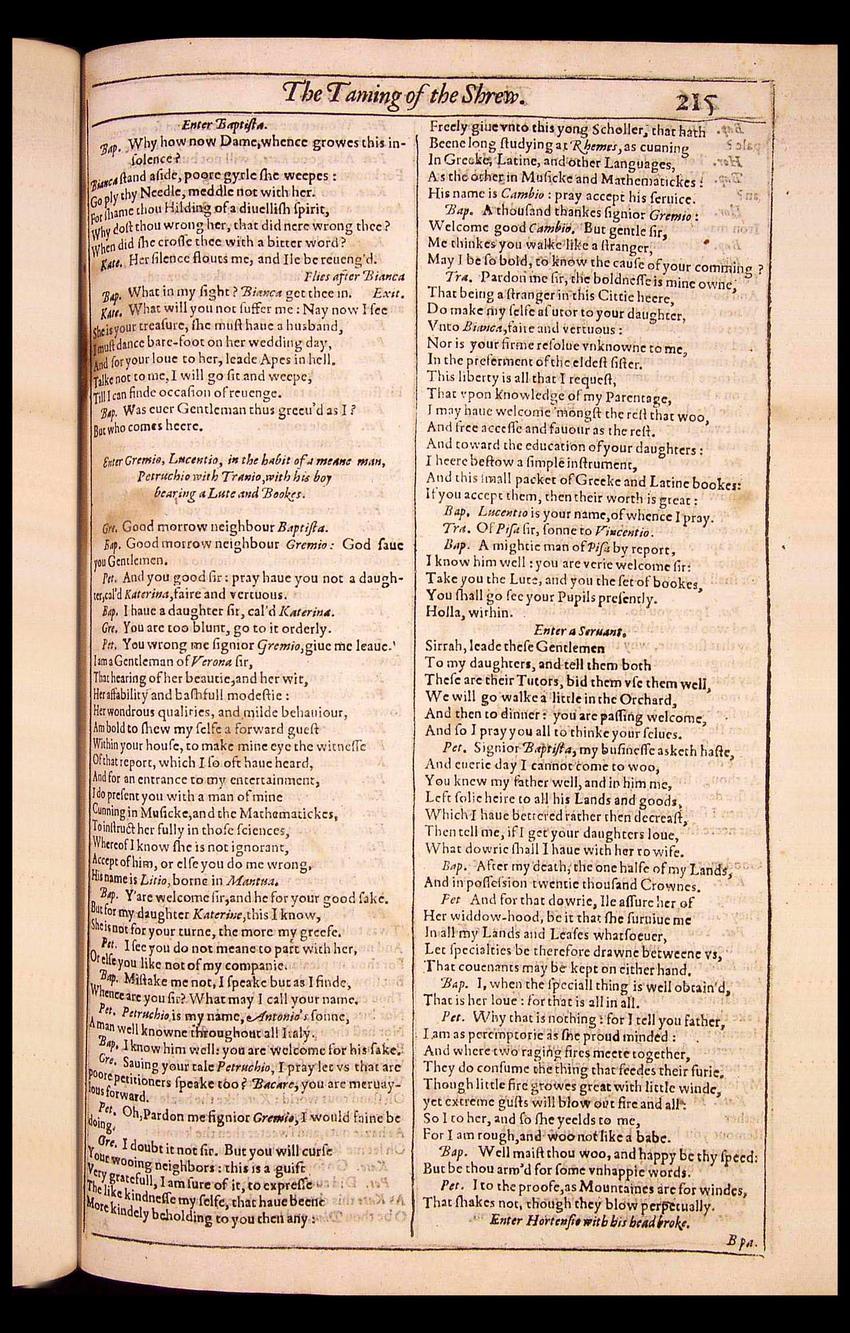 The Taming of the Shrew.
215
Enter Baptista.
Bap. Why how now Dame, whence growes this in-
solence?
Bianca stand aside, poore gyrle she weepes:
Go ply thy Needle, meddle not with her.
For shame thou Hilding of a diuellish spirit,
Why dost thou wrong her, that did nere wrong thee?
When did she crosse thee with a bitter word?
Kate. Her silence flouts me, and Ile be reueng'd.
Flies after Bianca
Bap. What in my sight? Bianca get thee in. Exit.
Kate. What will you not suffer me: Nay now I see
She is your treasure, she must haue a husband,
I must dance bare-foot on her wedding day,
And for your loue to her, leade Apes in hell.
Talke not to me, I will go sit and weepe,
Till I can finde occasion of reuenge.
Bap. Was euer Gentleman thus greeu'd as I?
But who comes heere.
Enter Gremio, Lucentio, in the habit of a meane man,
Petruchio with Tranio, with his boy
bearing a Lute and Bookes.
Gre. Good morrow neighbour Baptista.
Bap. Good morrow neighbour Gremio: God saue
you Gentlemen.
Pet. And you good sir: pray haue you not a daugh-
ter, cal'd Katerina, faire and vertuous.
Bap. I haue a daughter sir, cal'd Katerina.
Gre. You are too blunt, go to it orderly.
Pet. You wrong me signior Gremio, giue me leaue.
I am a Gentleman of Verona sir,
That hearing of her beautie, and her wit,
Her affability and bashfull modestie:
Her wondrous qualities, and milde behauiour,
Am bold to shew my selfe a forward guest
Within your house, to make mine eye the witnesse
Of that report, which I so oft haue heard,
And for an entrance to my entertainment,
I do present you with a man of mine
Cunning in Musicke, and the Mathematickes,
To instruct her fully in those sciences,
Whereof I know she is not ignorant,
Accept of him, or else you do me wrong,
His name is Litio, borne in Mantua.
Bap. Y'are welcome sir, and he for your good sake.
But for my daughter Katerine, this I know,
She is not for your turne, the more my greefe.
Pet. I see you do not meane to part with her,
Or else you like not of my companie.
Bap. Mistake me not, I speake but as I finde,
Whence are you sir? What may I call your name.
Pet. Petruchio is my name, Antonio's sonne,
A man well knowne throughout all Italy.
Bap. I know him well: you are welcome for his sake.
Gre. Sauing your tale Petruchio, I pray let vs that are
poore petitioners speake too? Bacare, you are meruay-
lous forward.
Pet. Oh, Pardon me signior Gremio, I would faine be
doing.
Gre. I doubt it not sir. But you will curse
Your wooing neighbors: this is a guift
Very gratefull, I am sure of it, to expresse
The like kindnesse my selfe, that haue beene
More kindely beholding to you then any:
Freely giue vnto this yong Scholler, that hath
Beene long studying at Rhemes, as cunning
In Greeke, Latine, and other Languages,
As the other in Musicke and Mathematickes:
His name is Cambio: pray accept his seruice.
Bap. A thousand thankes signior Gremio:
Welcome good Cambio. But gentle sir,
Me thinkes you walke like a stranger,
May I be so bold, to know the cause of your comming?
Tra. Pardon me sir, the boldnesse is mine owne,
That being a stranger in this Cittie heere,
Do make my selfe a sutor to your daughter,
Vnto Bianca, faire and vertuous:
Nor is your firme resolue vnknowne to me,
In the preferment of the eldest sister.
This liberty is all that I request,
That vpon knowledge of my Parentage,
I may haue welcome 'mongst the rest that woo,
And free accesse and fauour as the rest.
And toward the education of your daughters:
I heere bestow a simple instrument,
And this small packet of Greeke and Latine bookes:
If you accept them, then their worth is great:
Bap. Lucentio is your name, of whence I pray.
Tra. Of Pisa sir, sonne to Vincentio.
Bap. A mightie man of Pisa by report,
I know him well: you are verie welcome sir:
Take you the Lute, and you the set of bookes,
You shall go see your Pupils presently.
Holla, within.
Enter a Seruant.
Sirrah, leade these Gentlemen
To my daughters, and tell them both
These are their Tutors, bid them vse them well,
We will go walke a little in the Orchard,
And then to dinner: you are passing welcome,
And so I pray you all to thinke your selues.
Pet. Signior Baptista, my businesse asketh haste,
And euerie day I cannot come to woo,
You knew my father well, and in him me,
Left solie heire to all his Lands and goods,
Which I haue bettered rather then decreast,
Then tell me, if I get your daughters loue,
What dowrie shall I haue with her to wife.
Bap. After my death, the one halfe of my Lands,
And in possession twentie thousand Crownes.
Pet And for that dowrie, Ile assure her of
Her widdow-hood, be it that she suruiue me
In all my Lands and Leases whatsoeuer,
Let specialties be therefore drawne betweene vs,
That couenants may be kept on either hand.
Bap. I, when the speciall thing is well obtain'd,
That is her loue: for that is all in all.
Pet. Why that is nothing: for I tell you father,
I am as peremptorie as she proud minded:
And where two raging fires meete together,
They do consume the thing that feedes their furie.
Though little fire growes great with little winde,
yet extreme gusts will blow out fire and all:
So I to her, and so she yeelds to me,
For I am rough, and woo not like a babe.
Bap. Well maist thou woo, and happy be thy speed:
But be thou arm'd for some vnhappie words.
Pet. I to the proofe, as Mountaines are for windes,
That shakes not, though they blow perpetually.
Enter Hortensio with his head broke.
Bpa.